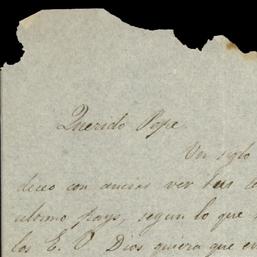 Querido Pepe
Un siglo
deceo con ancias ver tus
ultimo pays, segun lo que
los E. U. Dios quiera que en